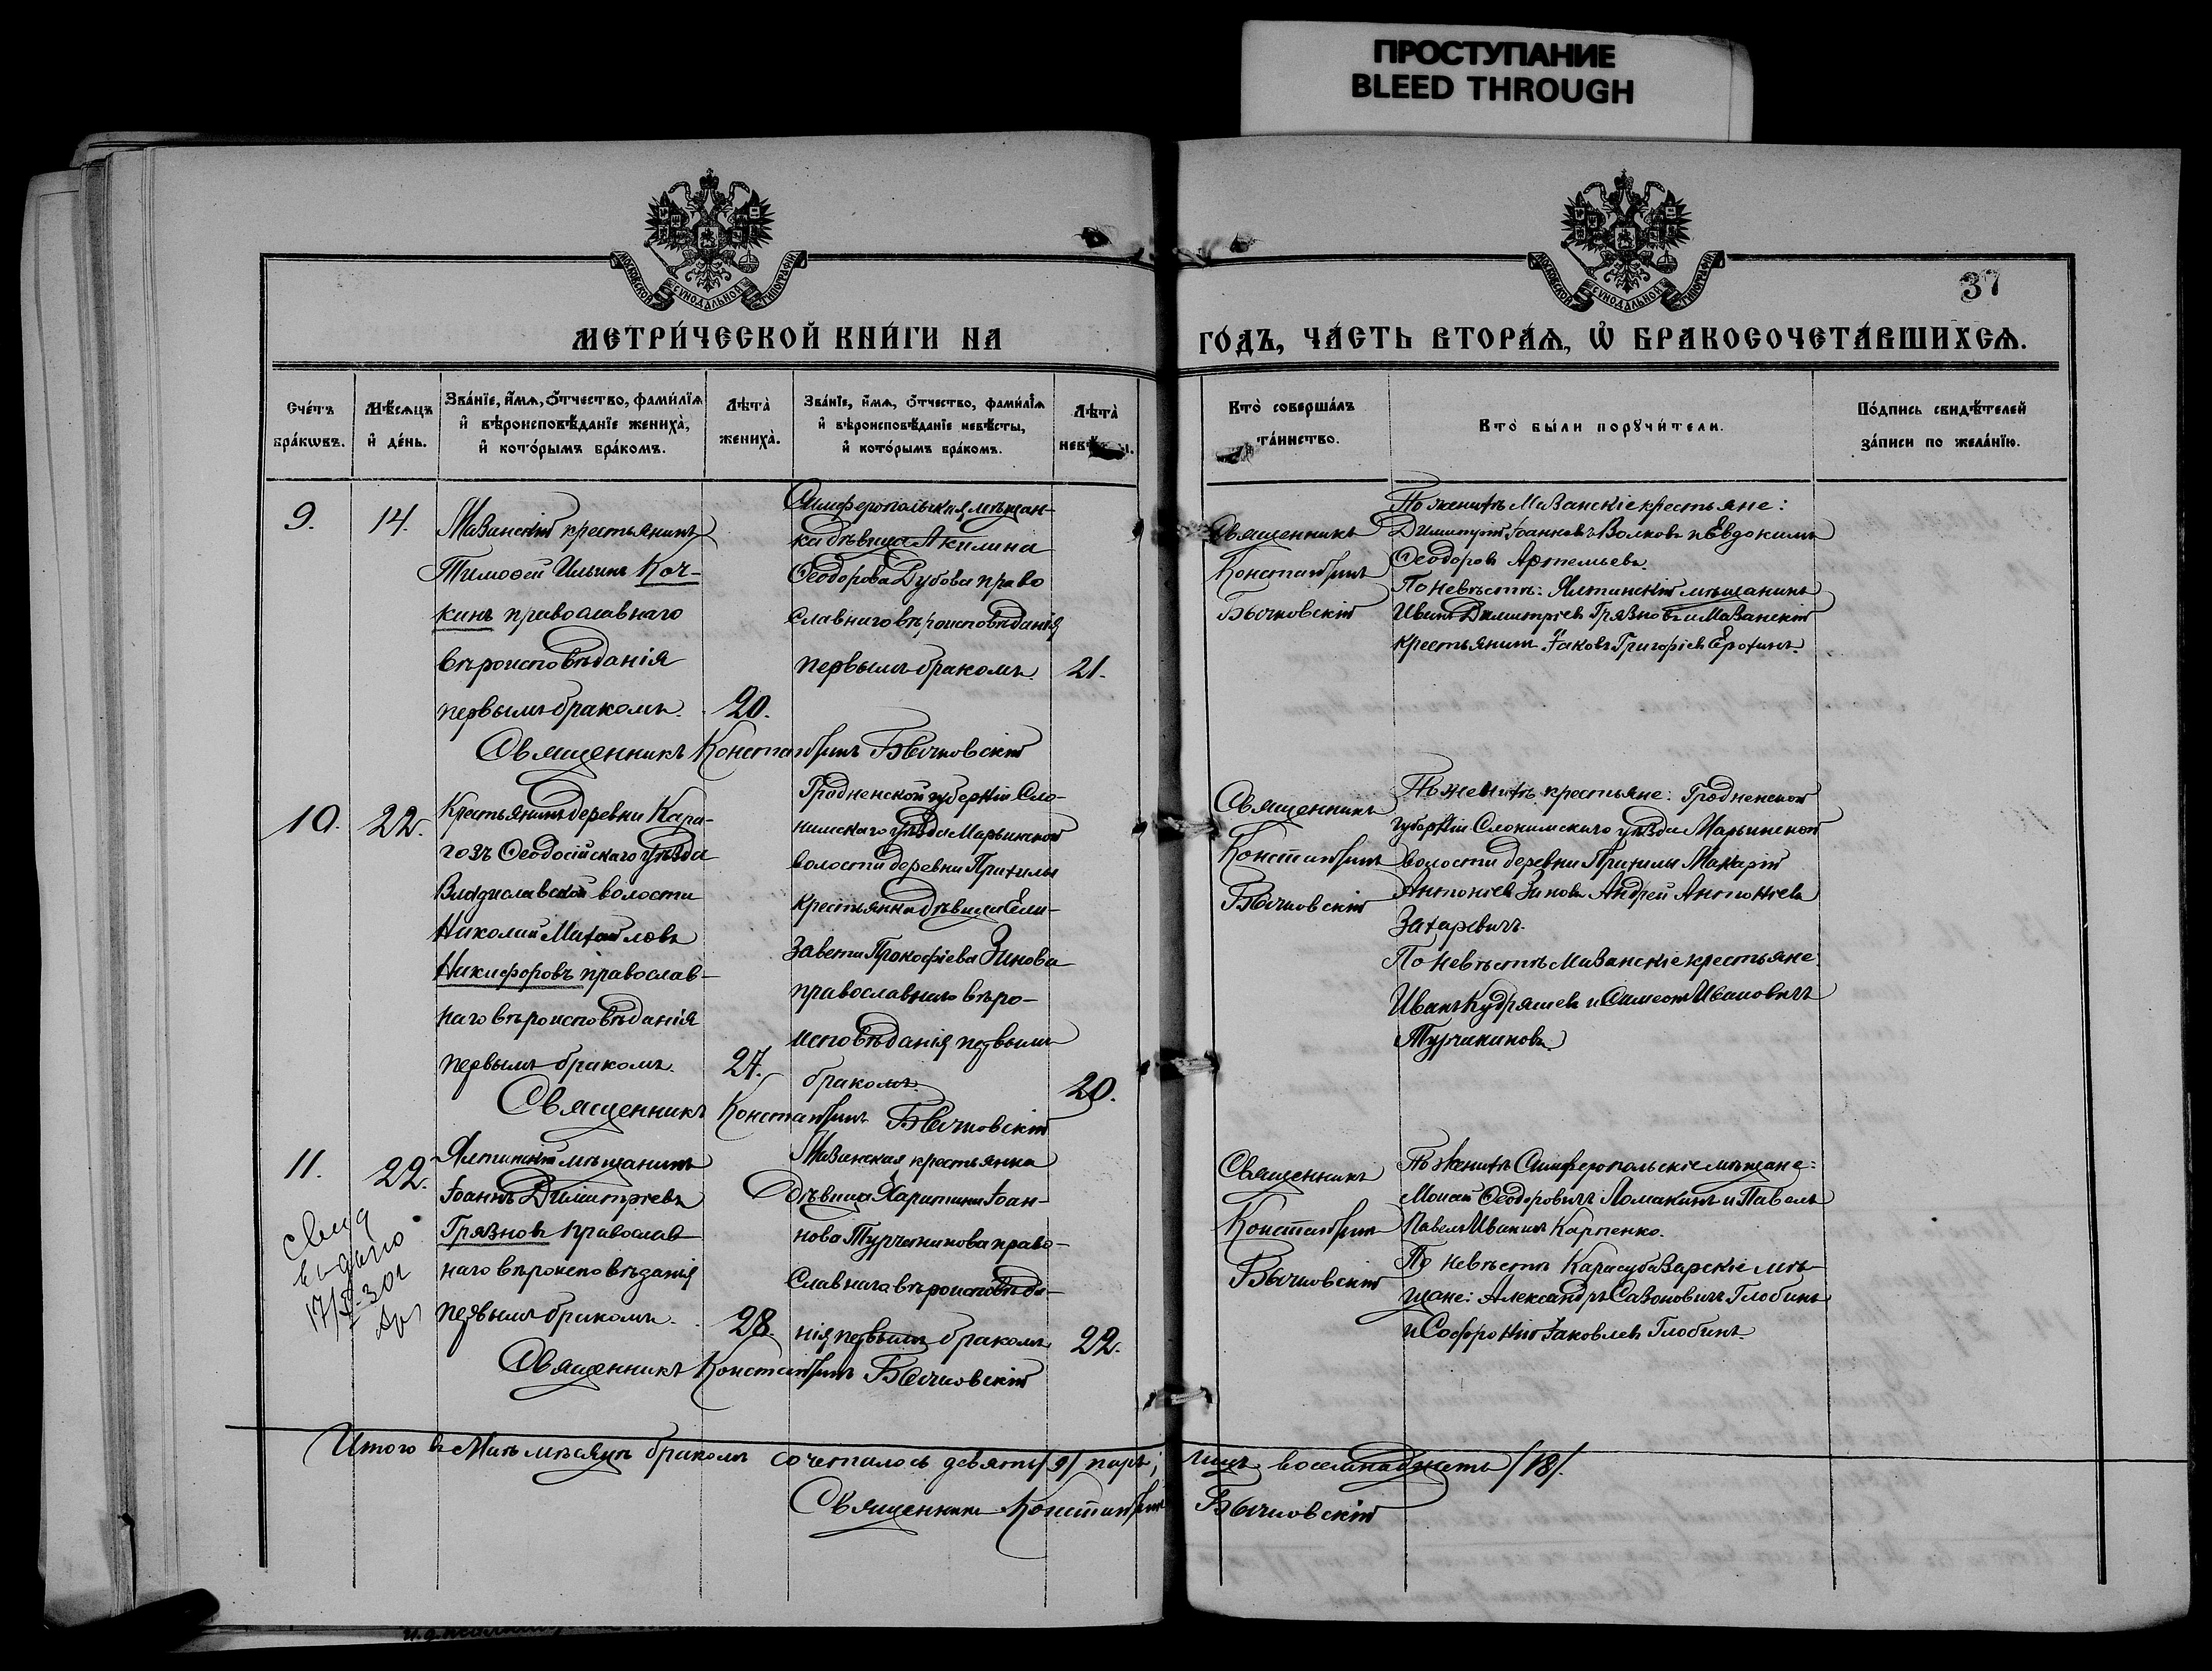 ПРОСТУПАНИЕ
BLEED THROUGH
МОСКОВСКОЙ СѴНОДАЛЬНОЙ ТИПОГРАФІИ
МОСКОВСКОЙ СѴНОДАЛЬНОЙ ТИПОГРАФІИ
37
МЕТРИ́ЧЕСКОЙ КНИ́ГИ НА
ГО́ДЪ, ЧА́СТЬ ВТОРА́Ѧ, Ѡ҆ БРАКОСОЧЕТА́ВШИХСѦ.
Сче́тъ
бра́кѡвъ.
Мѣ́сѧцъ
и҆ де́нь.
Зва́нїе, и҆́мѧ, о҆́тчество, фами́лїѧ
и҆ вѣроисповѣ́данїе жениха̀,
и҆ кото́рымъ бра́комъ.
Лѣта̀
жениха̀.
Зва́нїе, и҆́мѧ, о҆́тчество, фами́лїѧ
и҆ вѣроисповѣ́данїе невѣ́сты,
и҆ кото́рымъ бра́комъ.
Лѣта̀
невѣ́
Кто̀ соверша́лъ
та́инство.
Кто̀ бы́ли порꙋчи́тели.
По́дпись свидѣ́телей
за́писи по жела́нїю.
9.
14.
Мазанскій крестьянинъ
Тимоѳей Ильинъ Коч-
кинъ православнаго
вѣроисповѣданія
первымъ бракомъ.
20.
Симферопольская мѣщан-
ка дѣвица Акилина
Ѳеодорова Дубова право
славнаго вѣроисповѣданія
первымъ бракомъ.
21.
Священникъ
Константинъ
Бычковскій
По женихѣ Мазанскіе крестьяне:
Димитрій Іоанновъ Волковъ и Евдокимъ
Ѳеодоровъ Артемьевъ.
По невѣстѣ: Ялтинскій мѣщанинъ
Иванъ Димитріевъ Грязновъ и Мазанскій
крестьянинъ Іаковъ Григоріевъ Ерохинъ.
Священникъ Константинъ Бычковскій
10.
22.
Крестьянинъ деревни Кара-
гозъ Ѳеодосійскаго уѣзда
Владиславской волости
Николай Михайловъ
Никифоровъ православ-
наго вѣроисповѣданія
первымъ бракомъ.
27.
Гродненской губерніи Сло-
нимскаго уѣзда Марьинской
волости деревни Прихилы
крестьянка дѣвица Ели-
завета Прокофіева Зинова
православнаго вѣро-
исповѣданія первымъ
бракомъ.
20.
Священникъ
Константинъ
Бычковскій
По женихѣ крестьяне: Гродненской
губерніи Слонимскаго уѣзда Марьинской
волости деревни Прихилы Макарій
Антоніевъ Зиновъ Андрей Антоніевъ
Захаревичъ.
По невѣстѣ Мазанскіе крестьяне:
Иванъ Кудряшевъ и Симеонъ Ивановичъ
Турчаниновъ.
Священникъ Константинъ Бычковскій
11.
22.
Ялтинскій мѣщанинъ
Іоаннъ Димитріевъ
Грязновъ православ-
наго вѣроисповѣданія
первымъ бракомъ.
28.
Мазанская крестьянка
дѣвица Харитина Іоан-
нова Турчанинова право-
славнаго вѣроисповѣда-
нія первымъ бракомъ
22.
Священникъ
Константинъ
Бычковскій
По женихѣ Симферопольскіе мѣщане:
Моисей Ѳеодоровичъ Ломакинъ и Павелъ
Павелъ Ивановъ Карпенко.
По невѣстѣ Карасубазарскіе мѣ-
щане: Александръ Сазоновичъ Глобинъ
и Софроній Іаковлевъ Глобинъ.
Священникъ Константинъ Бычковскій
Итого въ Маѣ мѣсяцѣ бракомъ сочеталось девять /9/ паръ, лицъ восемнадцать /18/.
Священникъ Константинъ Бычковскій